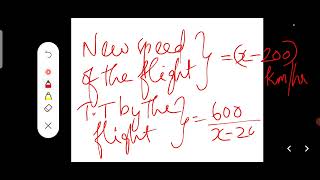 New speed
of the flight } = (x-200) km/hr
T.T by the
flight } = 600/x-20